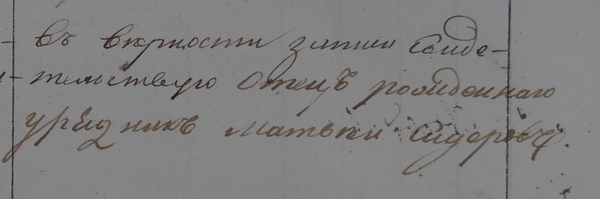 въ верности записи свиде-
тельствую отецъ рожденнаго
урядникъ Матвей Сидоровъ.